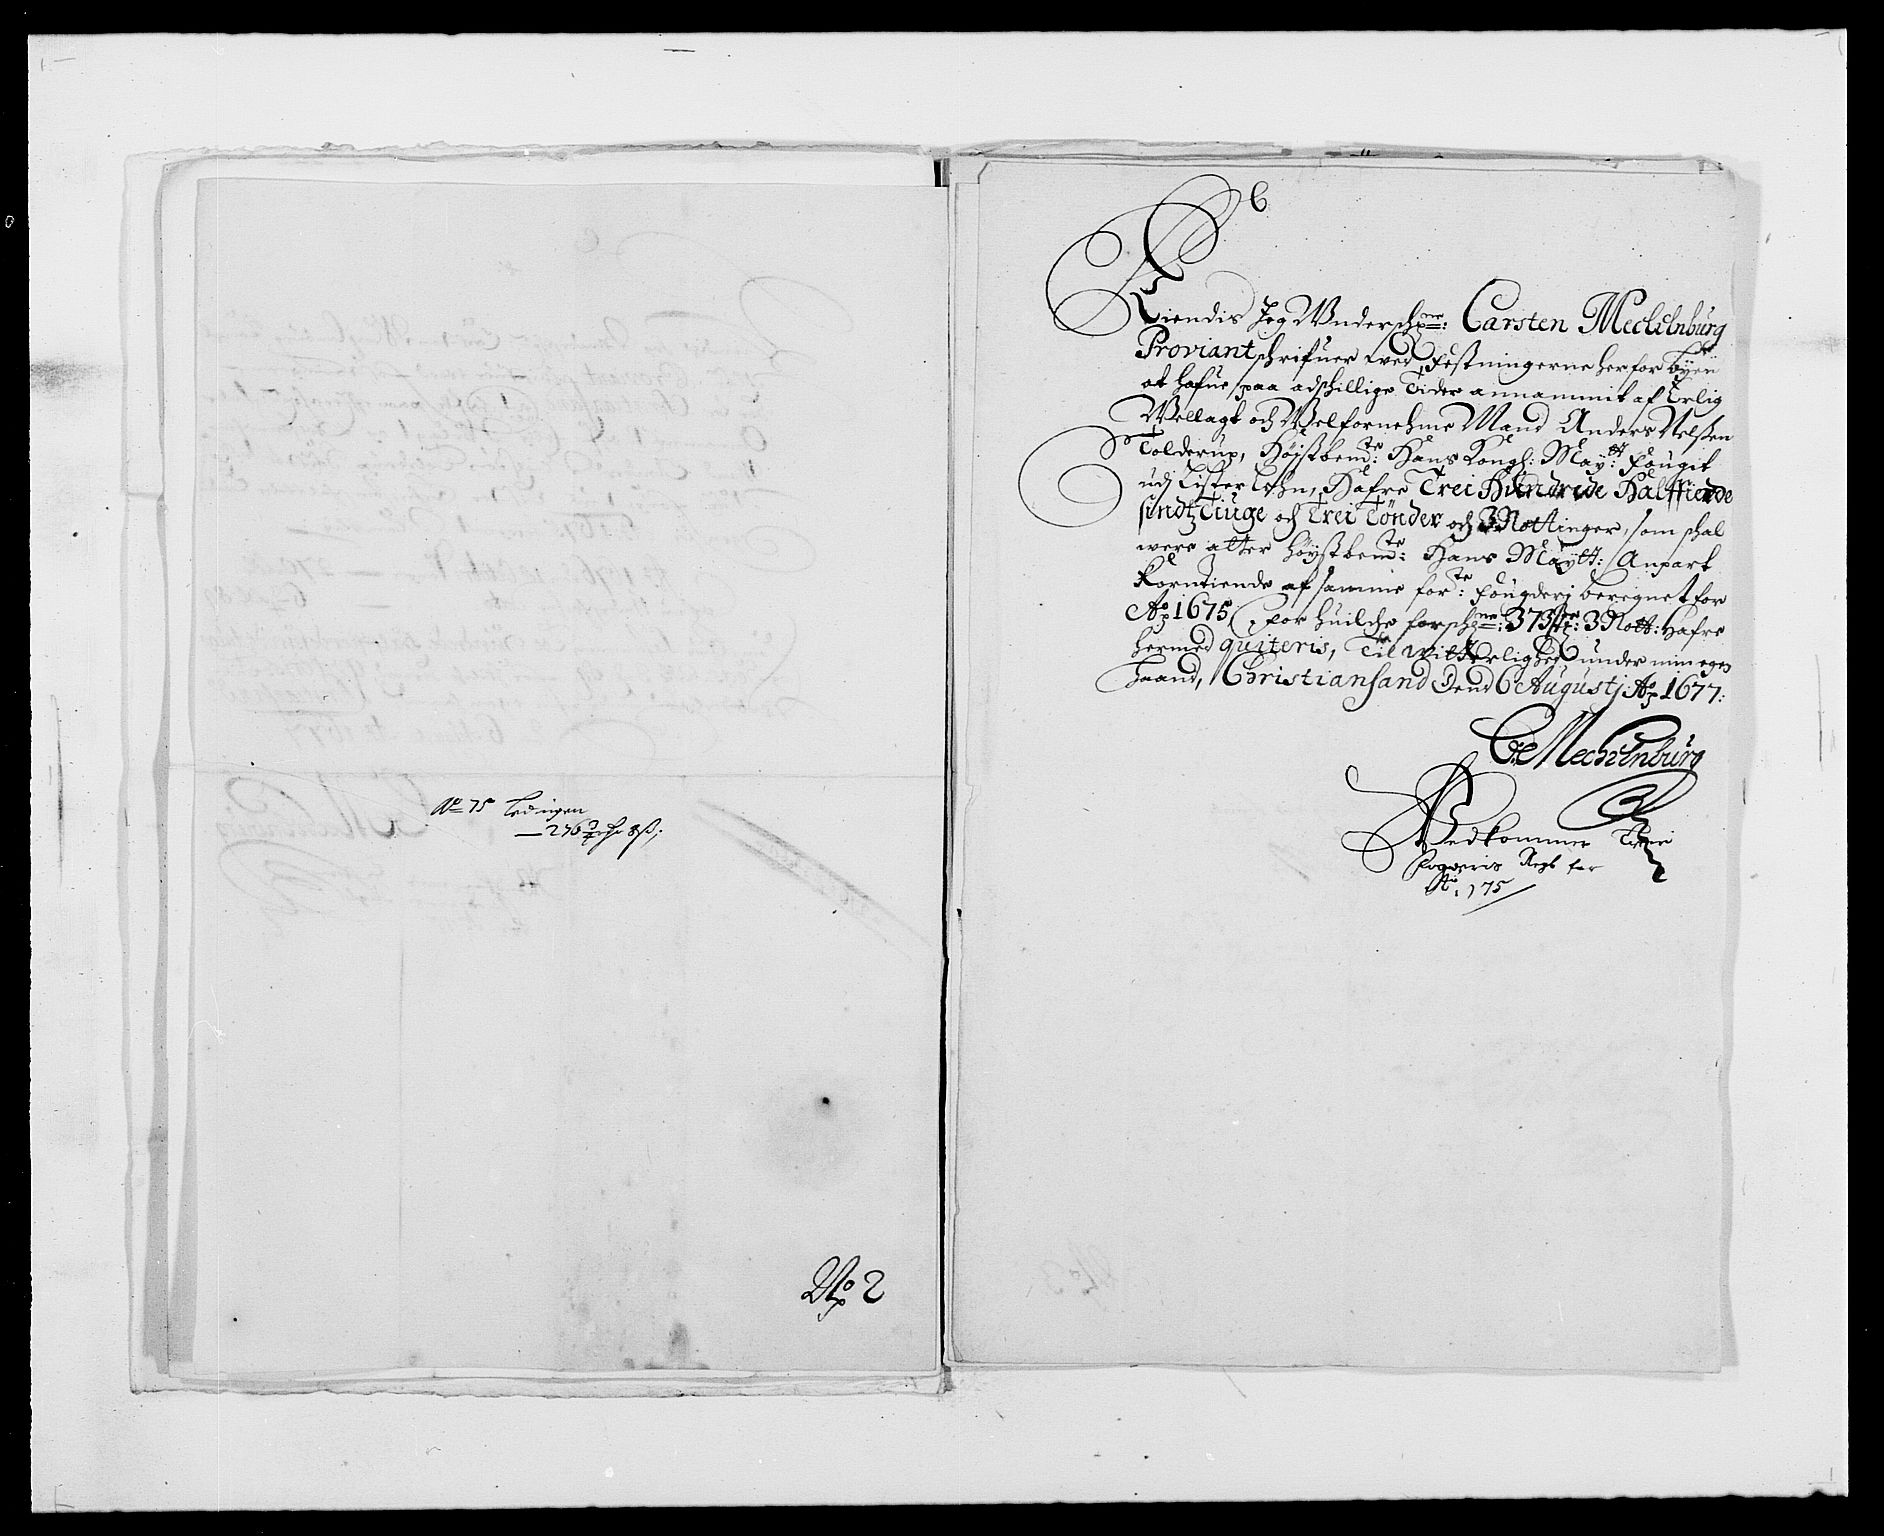 Ao 75
No 2
6
Kiendis Jeg Underschne: Carsten Mechelnburg
Proviantschrifuer wed Festningerne her for byen
at hafue paa adschillige Tider annammit af Erlig
Wellagt och Welfornehme Mand Anders Nelßen
Tolderup, Høistbemte: Hans Kongl: Maytt: Fougit
udj Lister Lehn, Hafre Trei Hundrede Halffierde
sindtz Tiuge och Trei Tönder och 3 Nottinger, som schal
were atter høystbemte: Hans Maytt: Anpart
Korntiende af samme forte: fougderj beregnet for
Ao 1675, for huilche forschne: 373 tr: 3 Nott: Hafre
hermed quiteris, Til Witterlighed under min egen
haand, Christiansand Dend 6 Augustj Ao 1677:
C Mechelnburg
Wedkommer
Fogderis Regb for
Ao 175